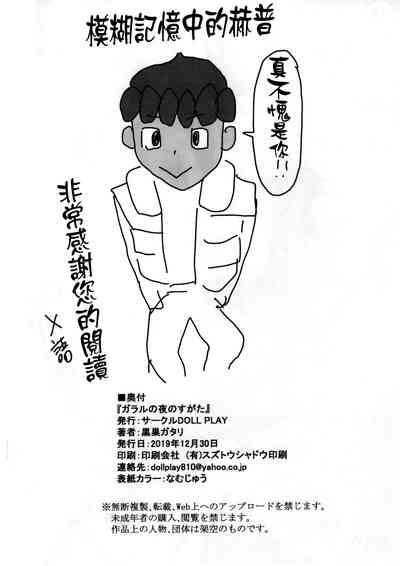 模糊記憶中的赫普
真不愧是你!!
非常感謝您的閱讀
■奥付
『ガラルの夜のすがた』
発行:サークルDOLL PLAY
著者:黒巣ガタリ
発行日:2019年12月30日
印刷:印刷会社 (有)スズトウシャドウ印刷
連絡先:dollplay810@yahoo.co.jp
表紙カラー:なむじゅう
※無断複製、転載、Web上へのアップロードを禁じます。
未成年者の購入、閲覧を禁じます。
作品上の人物、団体は架空のものです。